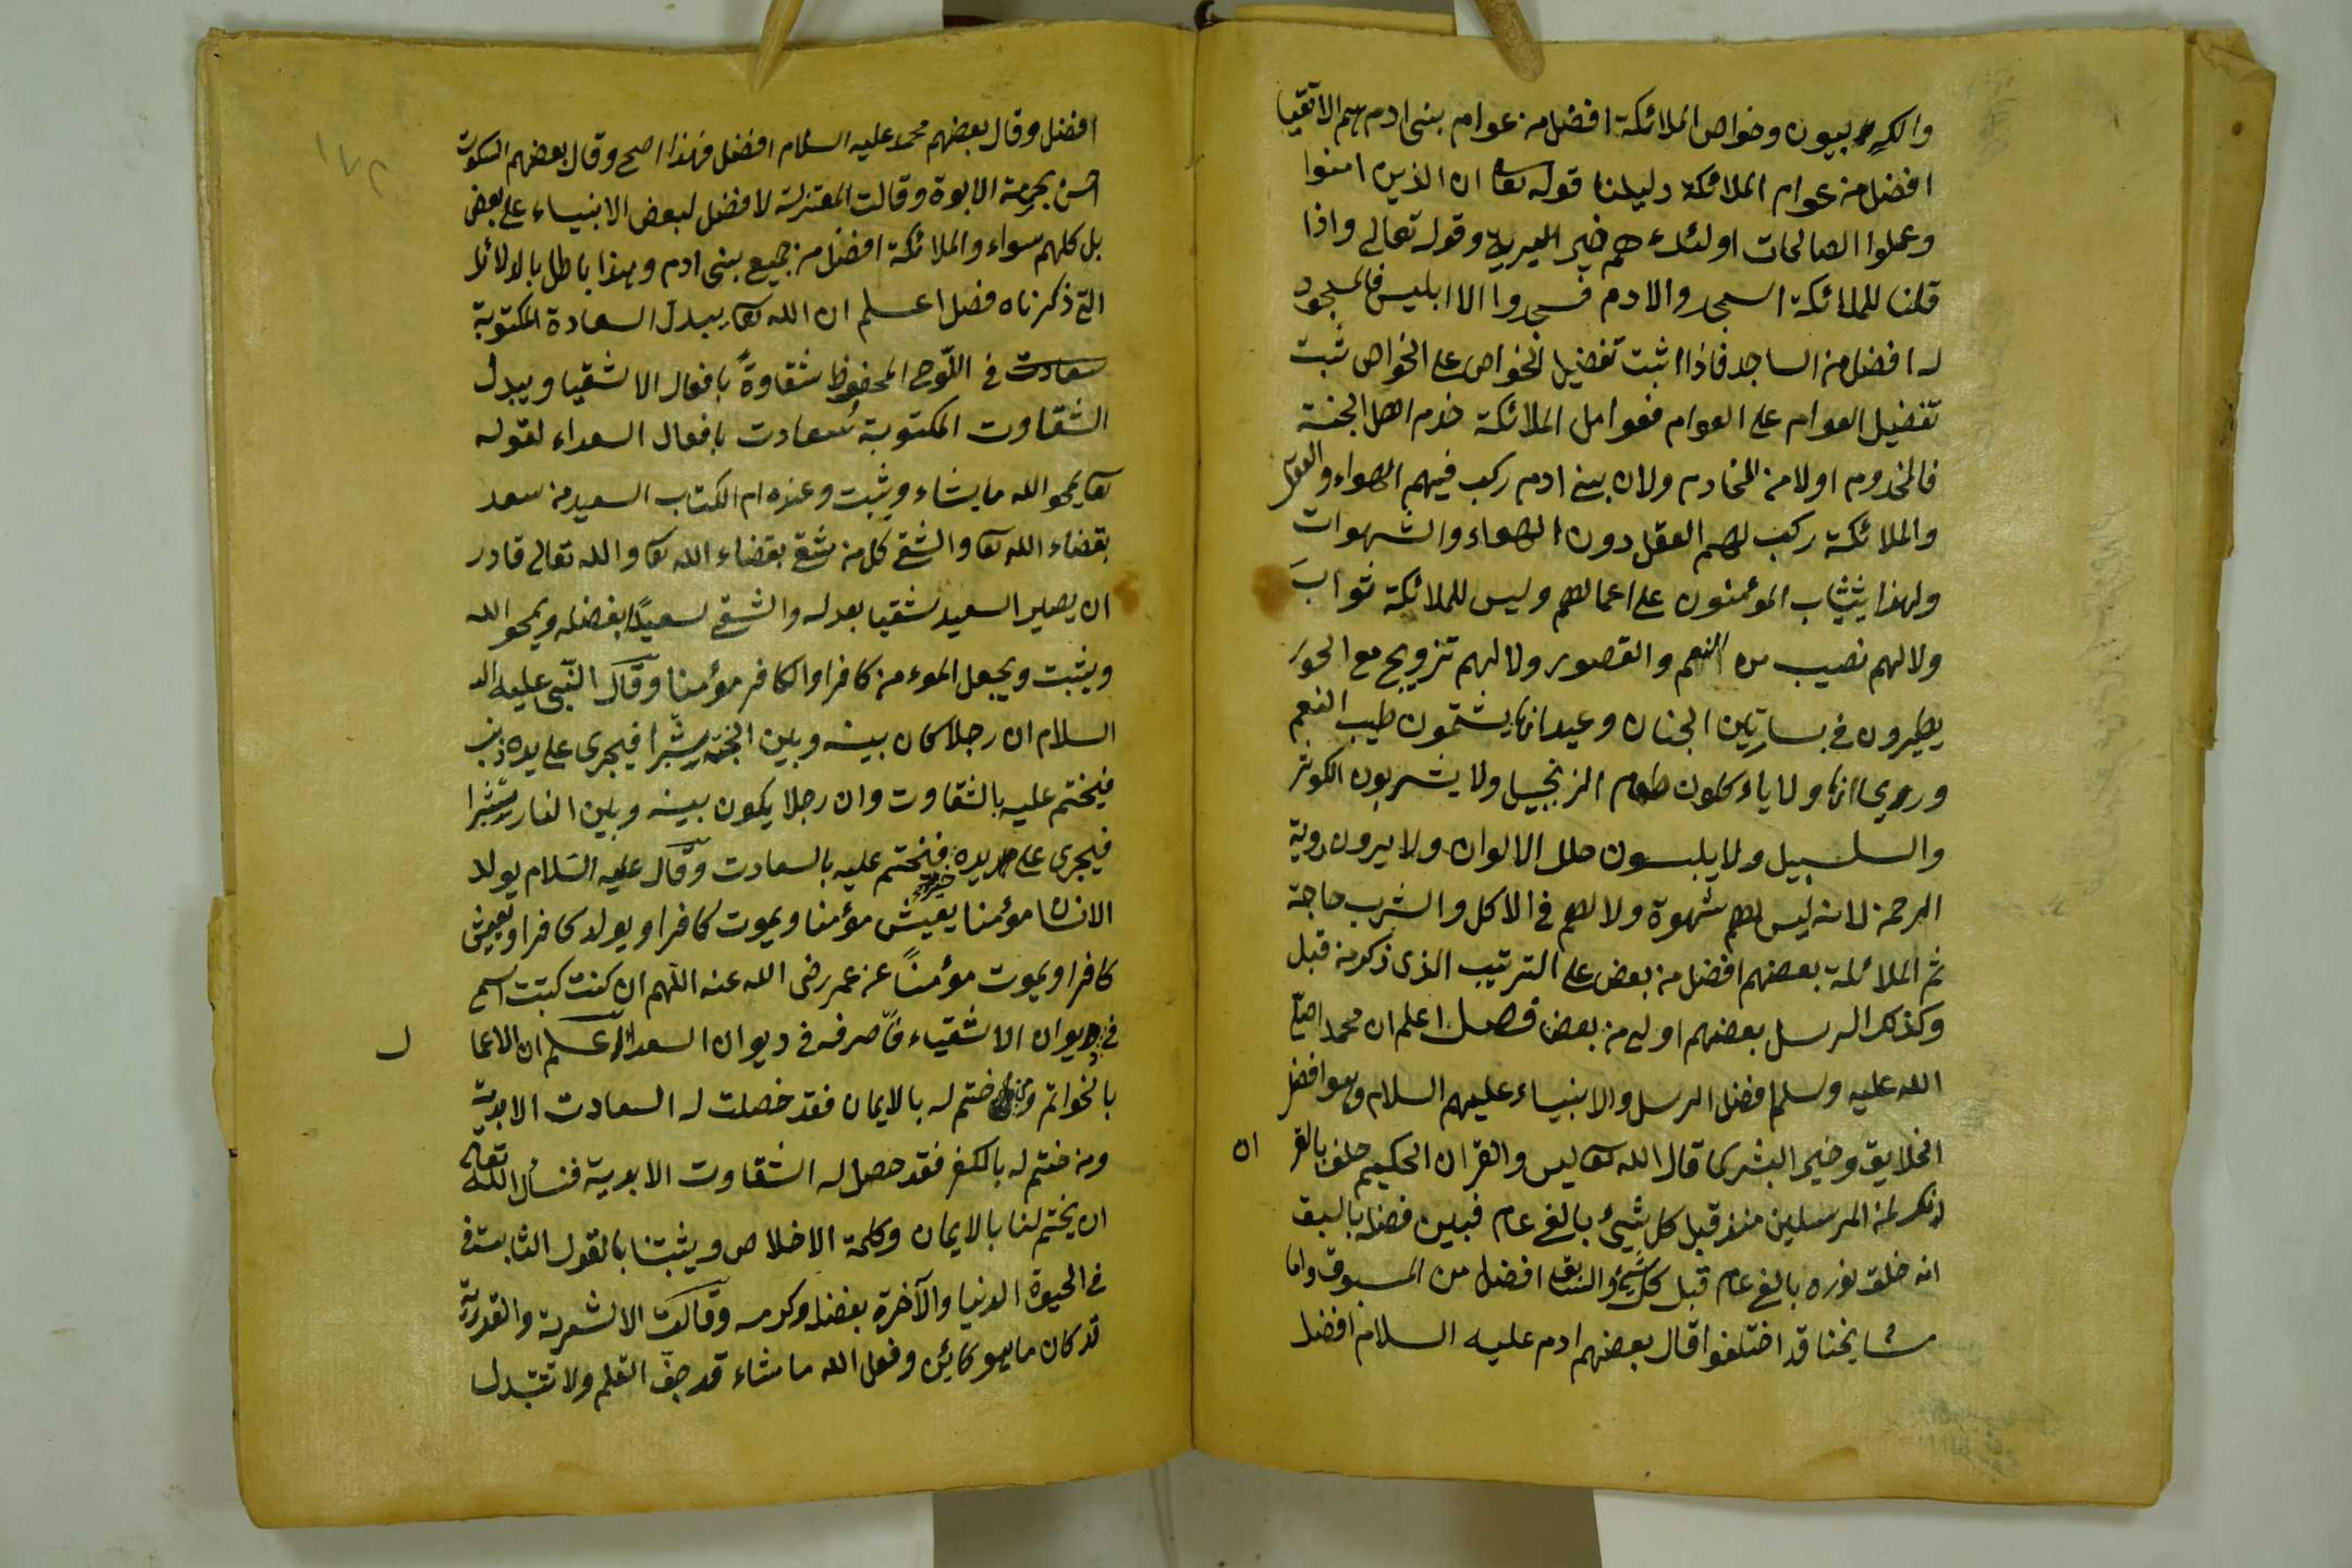 والكروبيون وخواص الملائكة افضل من عوام بنى ادم هم الاتقيا
افضل من عوام الملائكة دليلنا قوله تعا ان الذين امنوا
وعملوا الصالحات اولئك هم خير البرية وقوله تعالى واذا
قلنا للملائكة اسجدوا لادم فسجدوا الا ابليس فالمسجود
له افضل من الساجد فاذا اثبت تفضيل الخواص على الخواص ثبت
تفضيل العوام على العوام فعوامل الملائكة خدم اهل الجنة
فالمخدوم اولا من الخادم ولان بنى ادم ركب فيهم الهواء والعقل
والملائكة ركب لهم العقل دون الهواء والشهوات
ولهذا يثاب الموئمنون على اعمالهم وليس للملائكة ثواب
ولا لهم نصيب من النعم والقصور ولا لهم تزويج مع الحور
يطيرون فى بساتين الجنان وعيدانها يشتمون طيب النعم
ورويحانها ولا ياءكلون طعام الزنجبيل ولا يشربون الكوثر
والسلسبيل ولا يلبسون حلل الالوان ولا يرون روية
الرحمن لانه ليس لهم شهوة ولا لهم فى الاكل والشرب حاجة
ثم الملائكة بعضهم افضل من بعض على الترتيب الذى ذكر من قبل
وكذلك الرسل بعضهم اولى من بعض فصل اعلم ان محمدا صلى
الله عليه وسلم افضل الرسل والانبياء عليهم السلام وهو افضل
الخلايق وخير البشرى قال الله تعا يس والقران الحكيم حلف بالقر ان
انك لمن المرسلين منذ قبل كل شيئ بالفى عام فبين فضله بالسبق
انه خلق نوره بالفى عام قبل كل شئ والسابق افضل من المسبوق واما
مشايخنا قد اختلفوا قال بعضهم ادم عليه السلام افضل
افضل وقال بعضهم محمد عليه السلام افضل فهذا اصح وقال بعضهم السكوت
احسن بحرمة الابوة وقالت المعتزلة لا فضل لبعض الانبياء على بعض
بل كلهم سواء والملائكة افضل من جميع بنى ادم وهذا باطل بالدلائل
التى ذكرناه فصل اعلم ان الله تعا يبدل السعادة المكتوبة
سعادت فى اللوح المحفوظ شقاوة بافعال الاشقيا ويبدل
الشقاوت المكتوبة سعادت بافعال السعداء لقوله
تعا يمحو الله ما يشاء ويثبت وعنده ام الكتاب السعيد من سعد
بقضاء الله تعا والشقى كل من شقى بقضاء الله تعا والله تعالى قادر
ان يصير السعيد شقيا بعدله والشقى سعيدا بفضله ويمحو الله
ويثبت ويجعل الموءمن كافرا والكافر موئمنا وقال النبى عليه ال
السلام ان رجلا كان بينه وبين الجنة شبرا فيجرى على يده ذنب
فيختم عليه بالشقاوت وان رجلا يكون بينه وبين النار شبرا
فيجرى على يده خير فيختم عليه بالسعادت وقال عليه السلام يولد
الانسان مؤمنا يعيش مؤمنا ويموت كافرا ويولد كافرا ويعيش
كافرا ويموت مؤمنا عن عمر رضى الله عنه اللهم ان كنت كتبت اسمى
فى ديوان الاشقياء فاصرفه فى ديوان السعداء اعلم ان الاعما ل
بالخواتم ومن ختم له بالايمان فقد حصلت له السعادت الابدية
ومن ختم له بالكفر فقد حصل له الشقاوت الابدية فنسأل الله تعالى
ان يختم لنا بالايمان وكلمة الاخلاص ويثبتنا بالقول الثابت فى
فى الحيوة الدنيا والآخرة بفضله وكرمه وقالت الاشعرية والقدرية
قد كان ما هو كائن وفعل الله ما شاء قد جف القلم ولا تتبدل